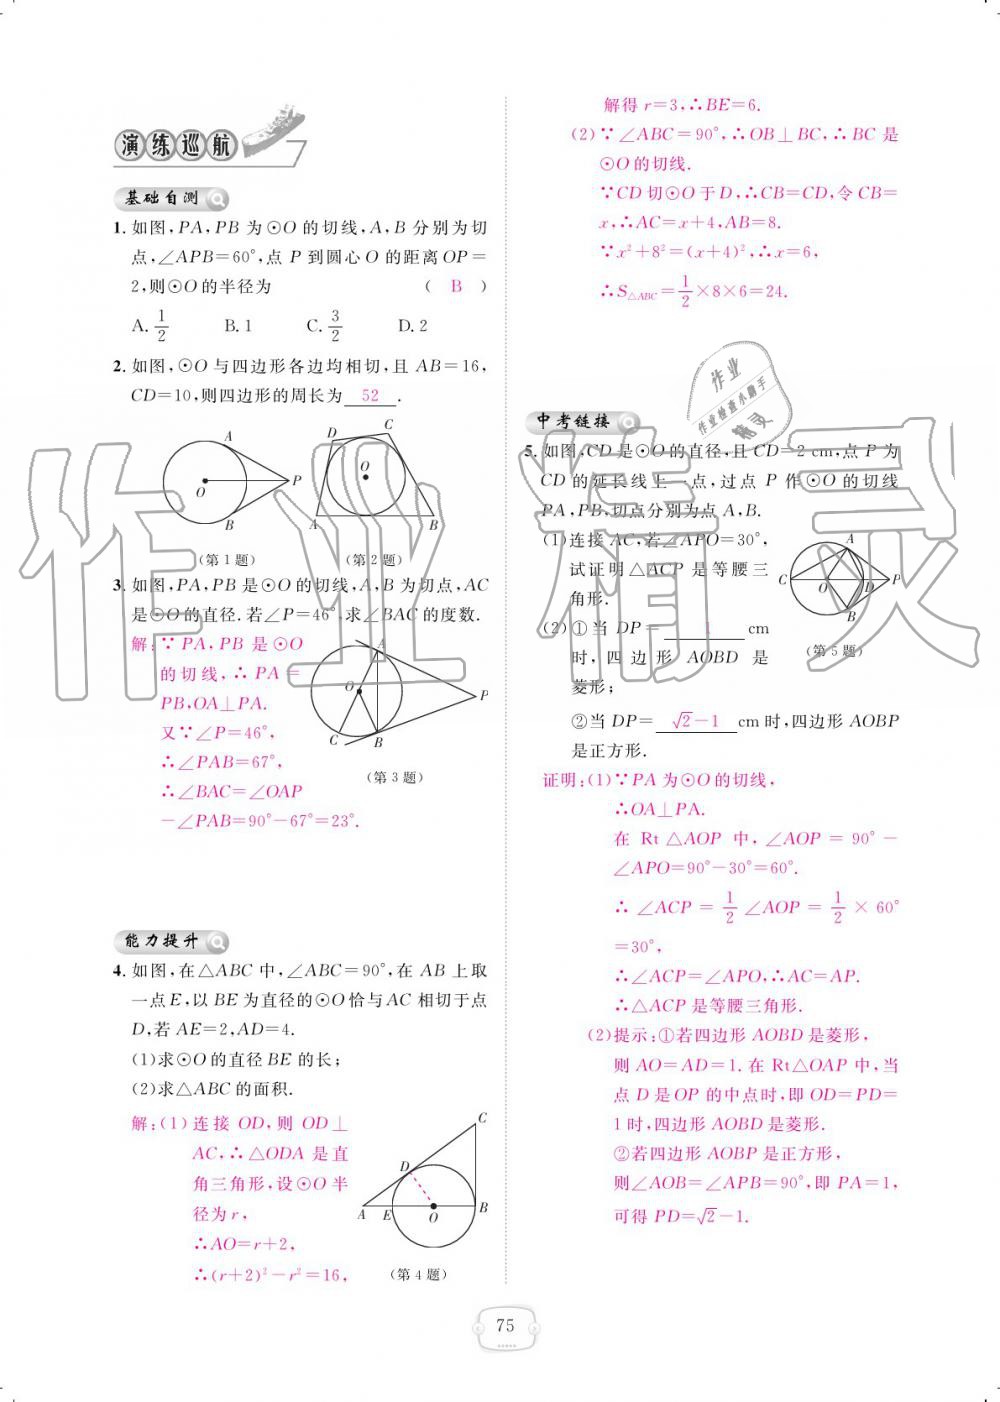 演练巡航
基础自测
1. 如图,PA,PB 为⊙O 的切线,A,B 分别为切
点,∠APB=60°,点 P 到圆心 O 的距离 OP=
2,则⊙O 的半径为 ( B )
A. 1/2 B. 1 C. 3/2 D. 2
2. 如图,⊙O 与四边形各边均相切,且 AB=16,
CD=10,则四边形的周长为 52 .
A
O
P
B
D
C
O
A
B
(第 1 题) (第 2 题)
3. 如图,PA,PB 是⊙O 的切线,A,B 为切点,AC
是⊙O 的直径.若∠P=46°,求∠BAC 的度数.
解:∵PA,PB 是⊙O
的切线,∴PA=
PB,OA⊥PA.
又∵∠P=46°,
∴∠PAB=67°,
∴∠BAC=∠OAP
-∠PAB=90°-67°=23°.
A
O
P
C
B
(第 3 题)
能力提升
4. 如图,在△ABC 中,∠ABC=90°,在 AB 上取
一点E,以 BE 为直径的⊙O恰与AC 相切于点
D,若 AE=2,AD=4.
(1)求⊙O 的直径 BE 的长;
(2)求△ABC 的面积.
解:(1)连接 OD,则 OD⊥
AC,∴△ODA 是直
角三角形,设⊙O 半
径为 r,
∴AO=r+2,
∴(r+2)²-r²=16,
C
D
A
E
O
B
(第 4 题)
解得 r=3,∴BE=6.
(2)∵∠ABC=90°,∴OB⊥BC,∴BC 是
⊙O 的切线.
∵CD 切⊙O 于 D,∴CB=CD,令 CB=
x,∴AC=x+4,AB=8.
∵x²+8²=(x+4)²,∴x=6,
∴S△ABC=1/2×8×6=24.
中考链接
5. 如图,CD 是⊙O 的直径,且 CD=2 cm,点 P 为
CD 的延长线上一点,过点 P 作⊙O 的切线
PA,PB,切点分别为点 A,B.
(1)连接 AC,若∠APO=30°,
试证明△ACP 是等腰三
角形.
(2)①当 DP= 1 cm
时,四边形 AOBD 是
菱形;
②当 DP= √2-1 cm 时,四边形 AOBP
是正方形.
A
C
O
D
P
B
(第 5 题)
证明:(1)∵PA 为⊙O 的切线,
∴OA⊥PA.
在 Rt△AOP 中,∠AOP=90°-
∠APO=90°-30°=60°.
∴∠ACP=1/2∠AOP=1/2×60°
=30°,
∴∠ACP=∠APO,∴AC=AP.
∴△ACP 是等腰三角形.
(2)提示:①若四边形 AOBD 是菱形,
则 AO=AD=1.在 Rt△OAP 中,当
点 D 是 OP 的中点时,即 OD=PD=
1 时,四边形 AOBD 是菱形.
②若四边形 AOBP 是正方形,
则∠AOB=∠APB=90°,即 PA=1,
可得 PD=√2-1.
75
作业精灵
作业
作业检查小助手
精灵